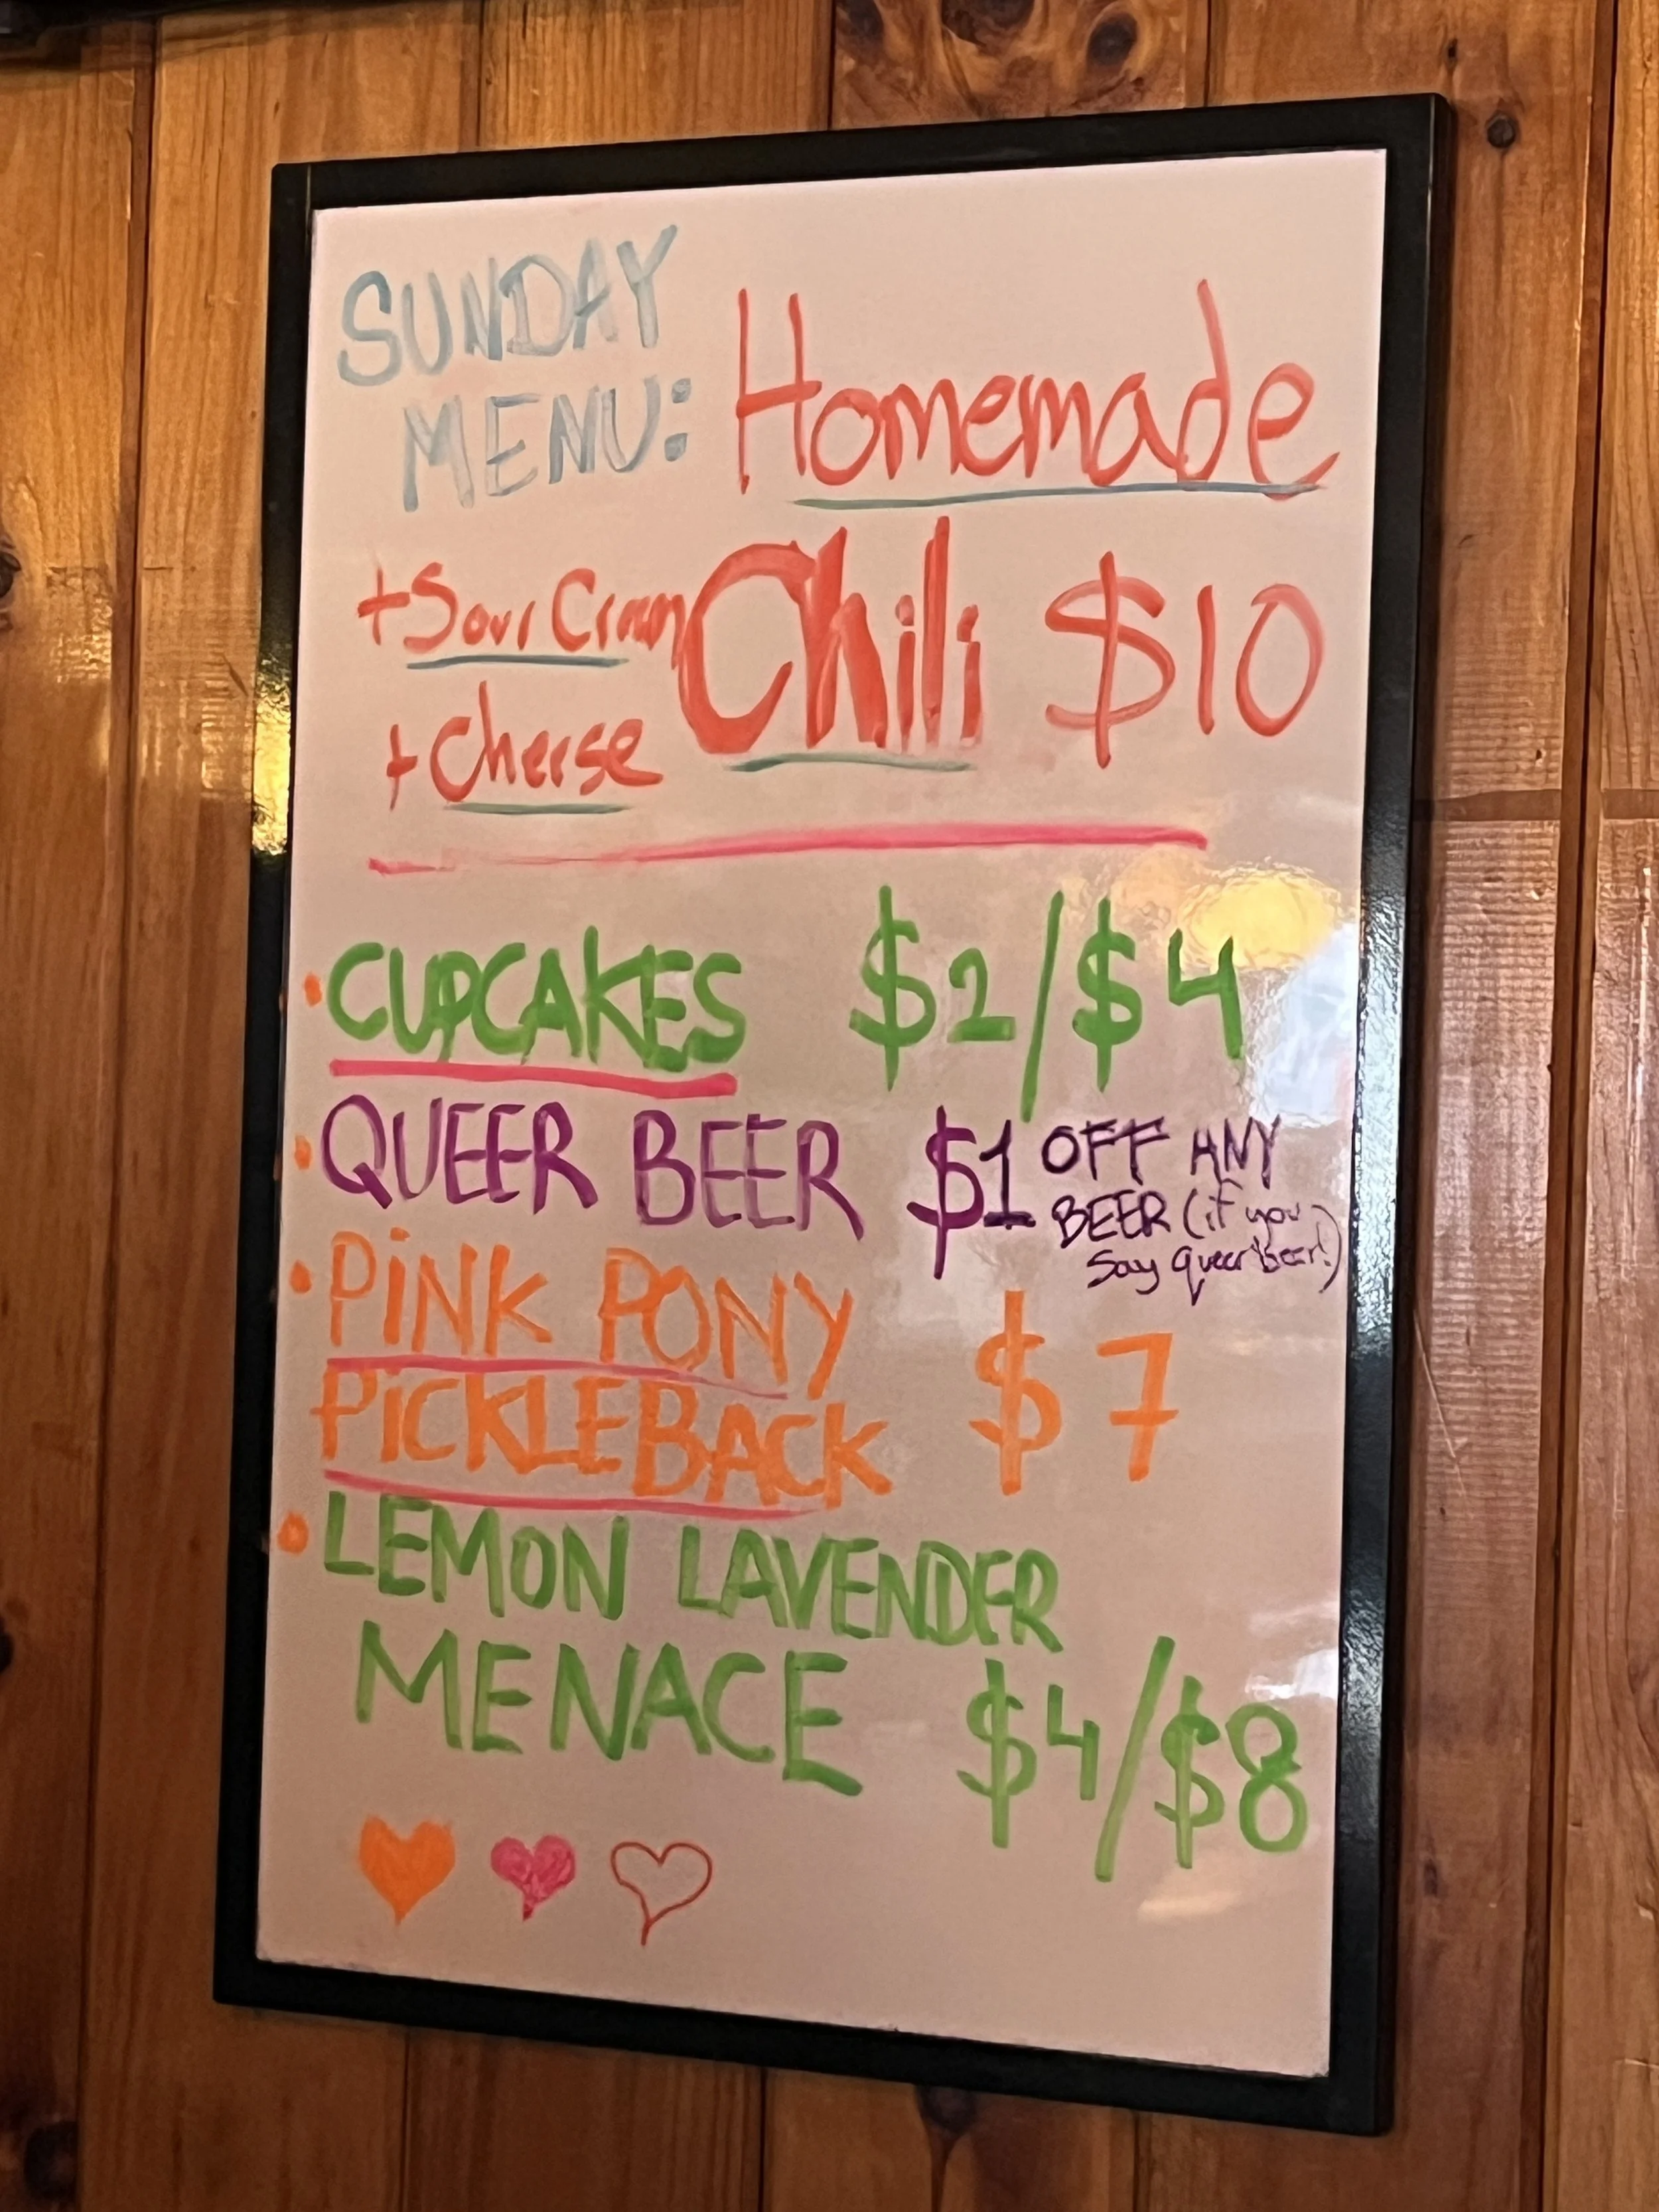 SUNDAY
MENU: Homemade
+ Sour Cream Chili $10
+ Cheese
• CUPCAKES $2/$4
• QUEER BEER $1 OFF ANY
BEER (if you
say queer beer!)
• PiNK PONY
PiCKLEBACK $7
• LEMON LAVENDER
MENACE $4/$8